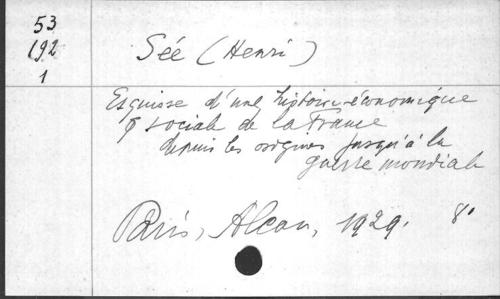 53
192
1
Sée (Henri)
Esquisse d'une histoire économique
& sociale de la France
depuis les origines jusqu'à la
guerre mondiale
Paris, Alcan, 1929. 8°